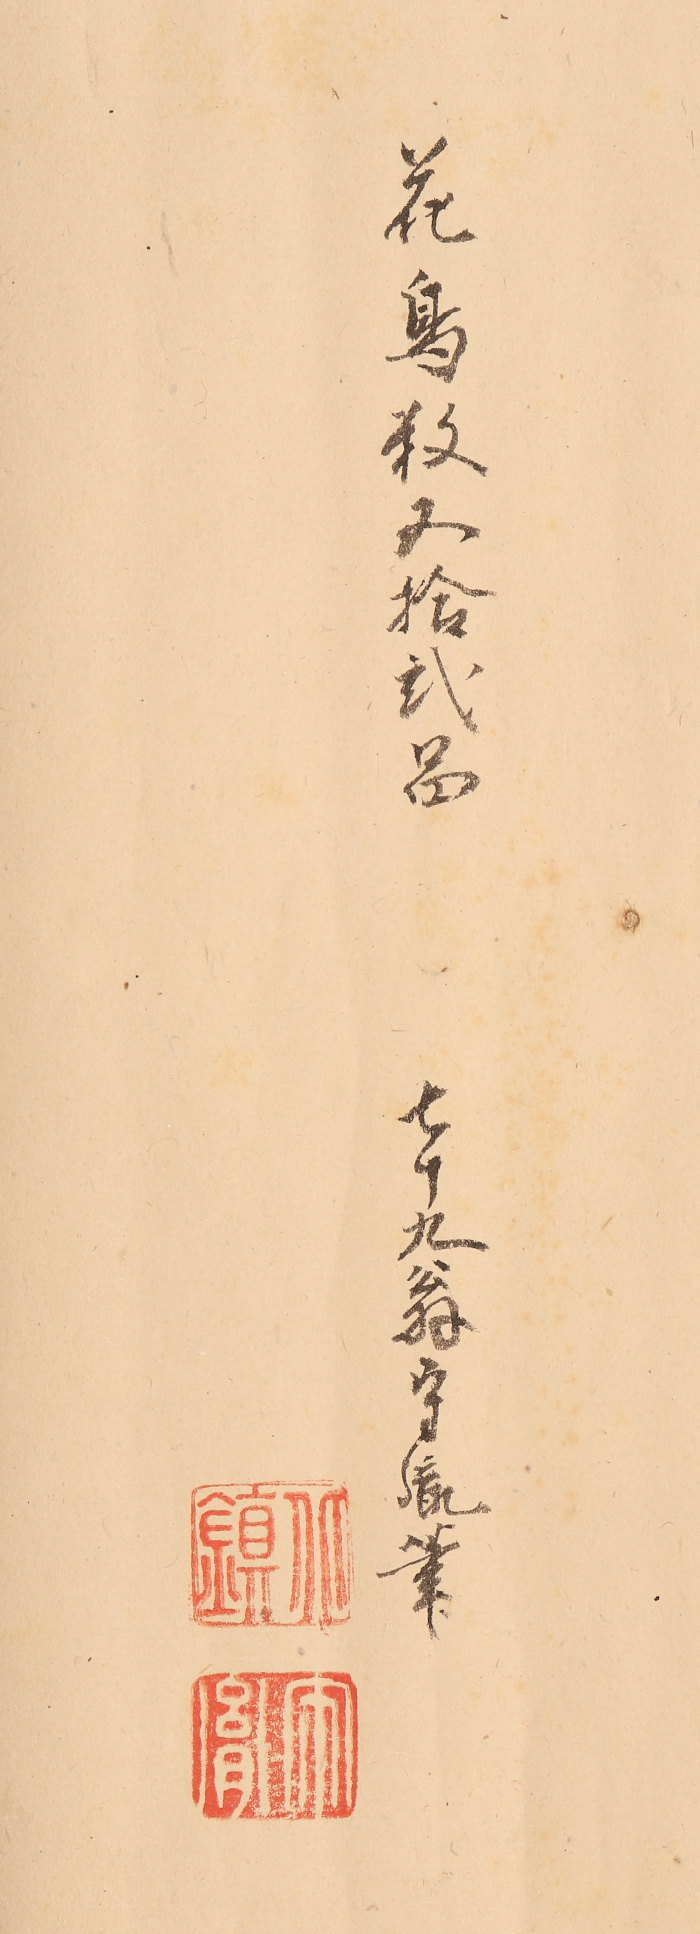 花鳥数五拾弐品
七十九翁守胤筆